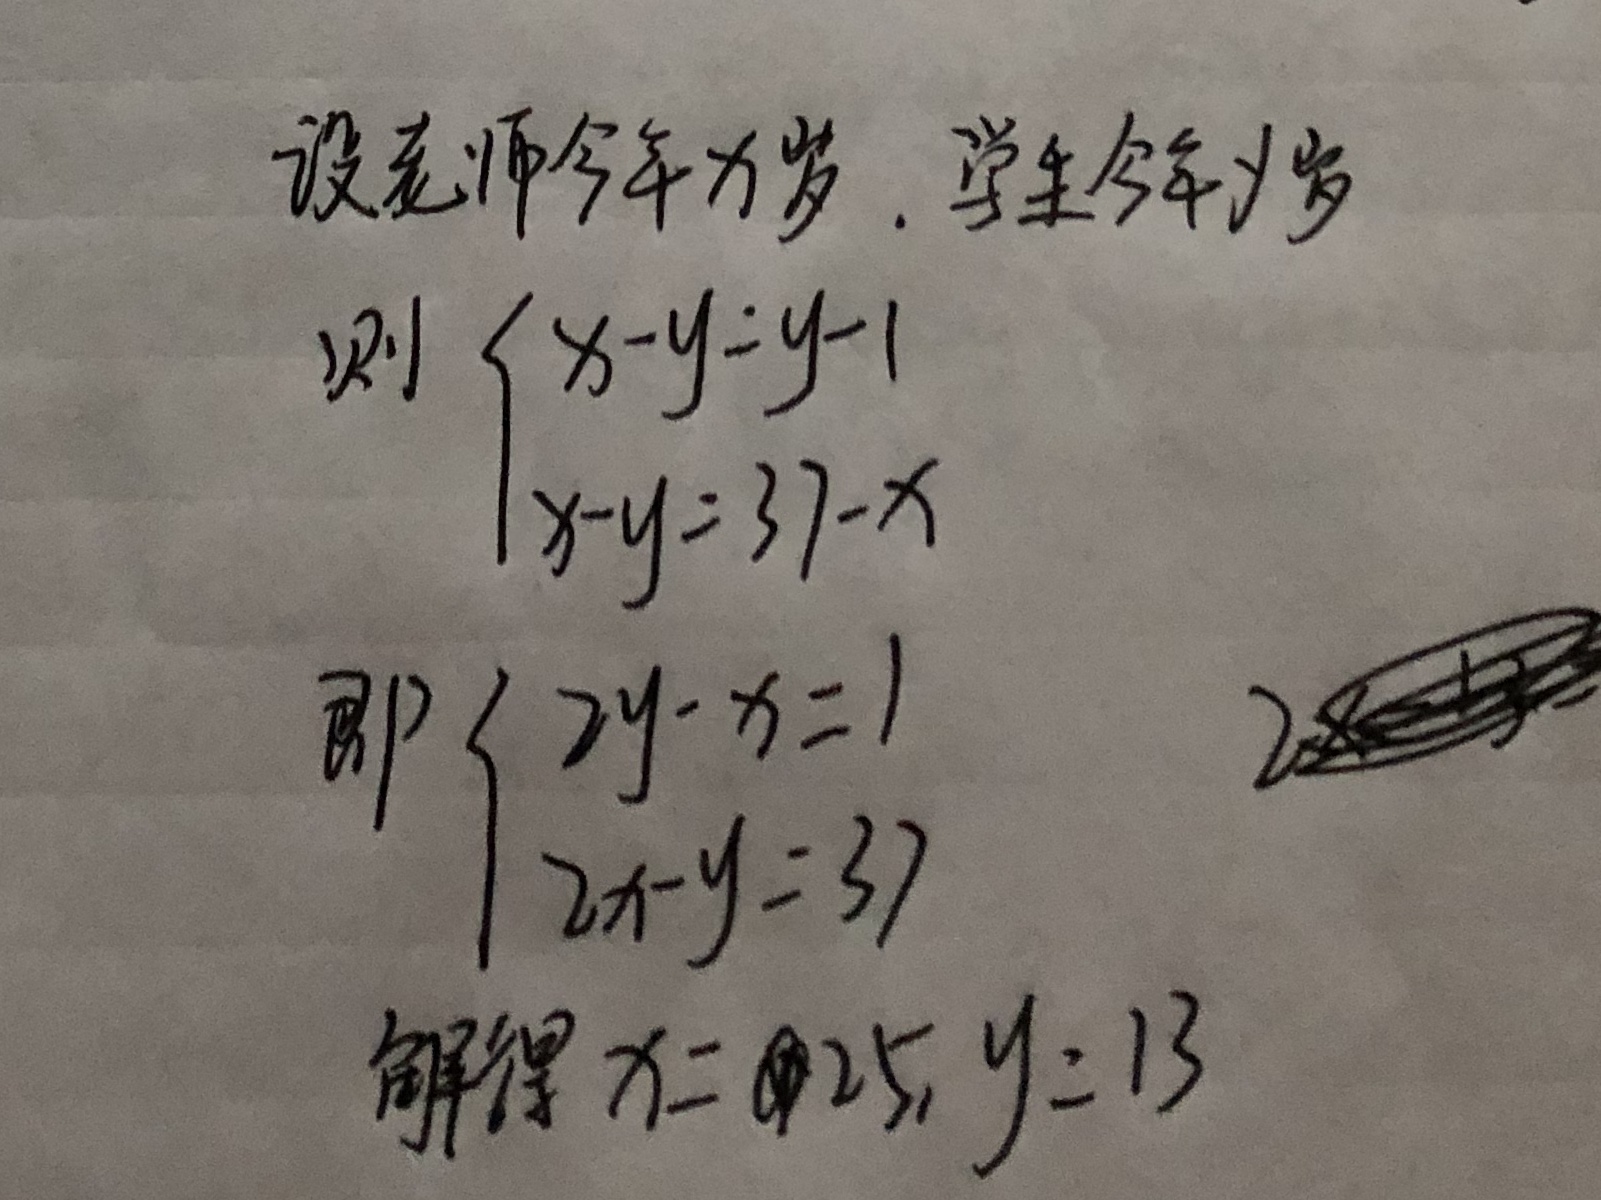 设老师今年x岁.学生今年y岁
则 { x-y=y-1
x-y=37-x
即 { 2y-x=1
2x-y=37
解得 x=25, y=13